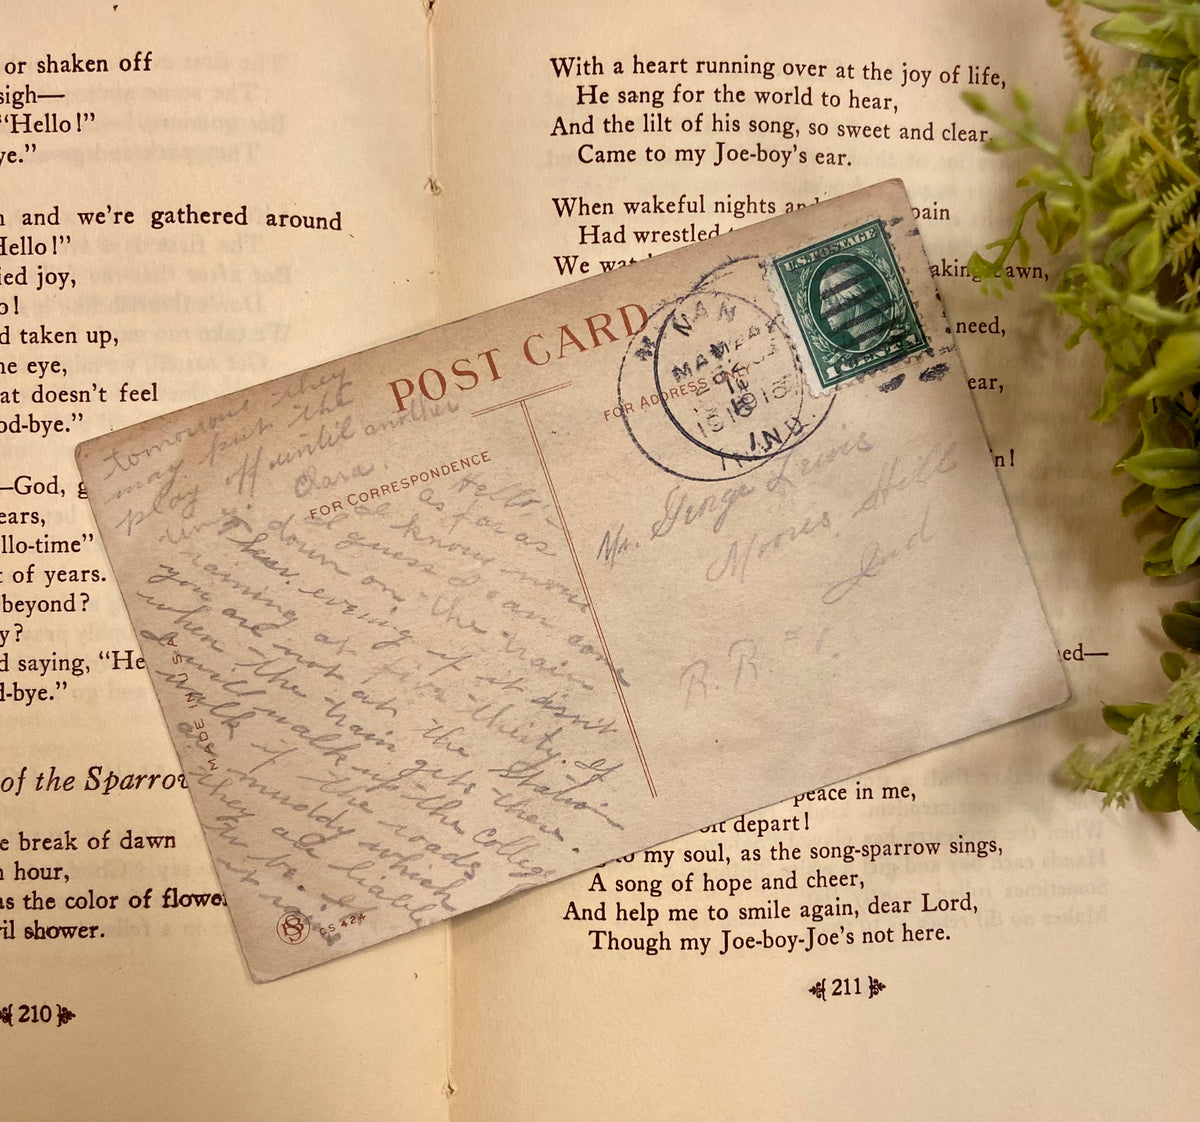 or shaken off
sigh—
“Hello!”
ye.”
and we're gathered around
Hello!”
ied joy,
o!
d taken up,
ne eye,
at doesn't feel
od-bye.”
—God,
ears,
llo-time”
t of years.
beyond?
y?
d saying, “He
d-bye.”
of the Sparrow
e break of dawn
n hour,
as the color of flowe
il shower.
210
With a heart running over at the joy of life,
He sang for the world to hear,
And the lilt of his song, so sweet and clear,
Came to my Joe-boy's ear.
When wakeful nights and pain
Had wrestled
We wat aking dawn,
need,
ear,
n!
ed—
peace in me,
depart!
to my soul, as the song-sparrow sings,
A song of hope and cheer,
And help me to smile again, dear Lord,
Though my Joe-boy-Joe's not here.
211
POST CARD
FOR CORRESPONDENCE
FOR ADDRESS ONLY
U.S. POSTAGE
1 CENT 1
IND.
Mr. George Lewis
Moores Hill
Ind
R R #1.
Hello:-
as far as
I know now
I guess I can come
down on the train
Thur. evening if it isn't
raining at five-thirty. If
you are not at the station
when the train gets there.
I will walk up to the College
walk if the roads
muddy which
they are liable
to be.
tomorrow they
may put the
play off until another
Clara.
MADE IN U.S.A.
S 424